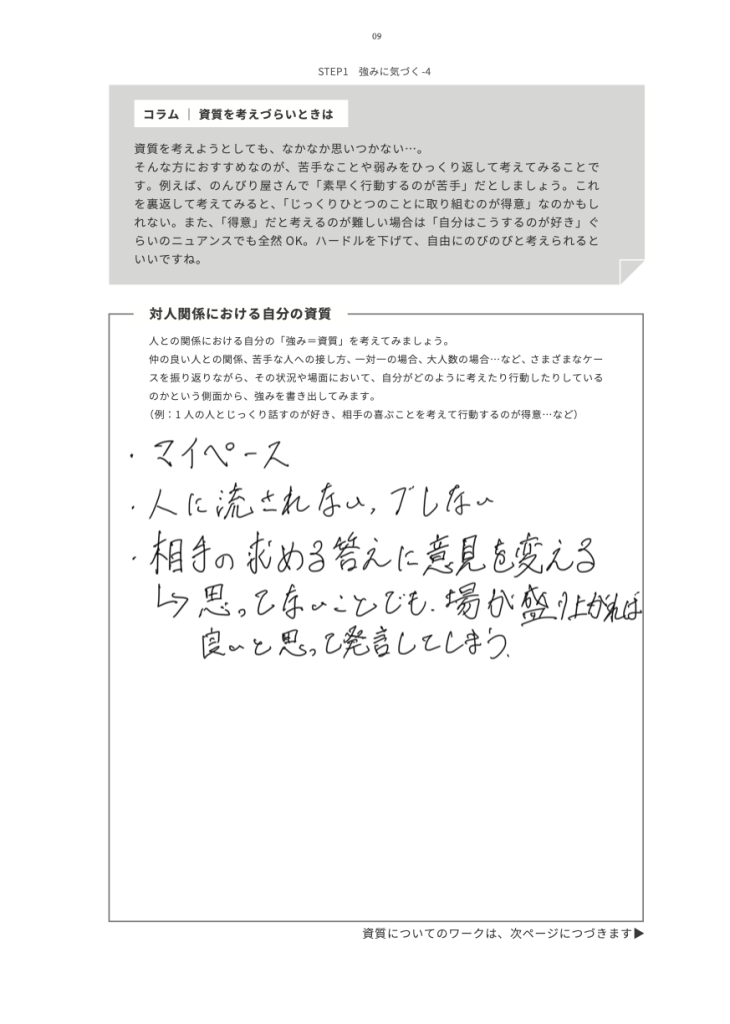 09
STEP1 強みに気づく-4
コラム｜資質を考えづらいときは
資質を考えようとしても、なかなか思いつかない…。
そんな方におすすめなのが、苦手なことや弱みをひっくり返して考えてみることで
す。例えば、のんびり屋さんで「素早く行動するのが苦手」だとしましょう。これ
を裏返して考えてみると、「じっくりひとつのことに取り組むのが得意」なのかもし
れない。また、「得意」だと考えるのが難しい場合は「自分はこうするのが好き」ぐ
らいのニュアンスでも全然 OK。ハードルを下げて、自由にのびのびと考えられると
いいですね。
対人関係における自分の資質
人との関係における自分の「強み＝資質」を考えてみましょう。
仲の良い人との関係、苦手な人への接し方、一対一の場合、大人数の場合…など、さまざまなケー
スを振り返りながら、その状況や場面において、自分がどのように考えたり行動したりしている
のかという側面から、強みを書き出してみます。
（例：1 人の人とじっくり話すのが好き、相手の喜ぶことを考えて行動するのが得意…など）
・マイペース
・人に流されない, ブレない
・相手の求める答えに意見を変える
↳ 思ってないことでも、場が盛り上がれば
良いと思って発言してしまう。
資質についてのワークは、次ページにつづきます▶